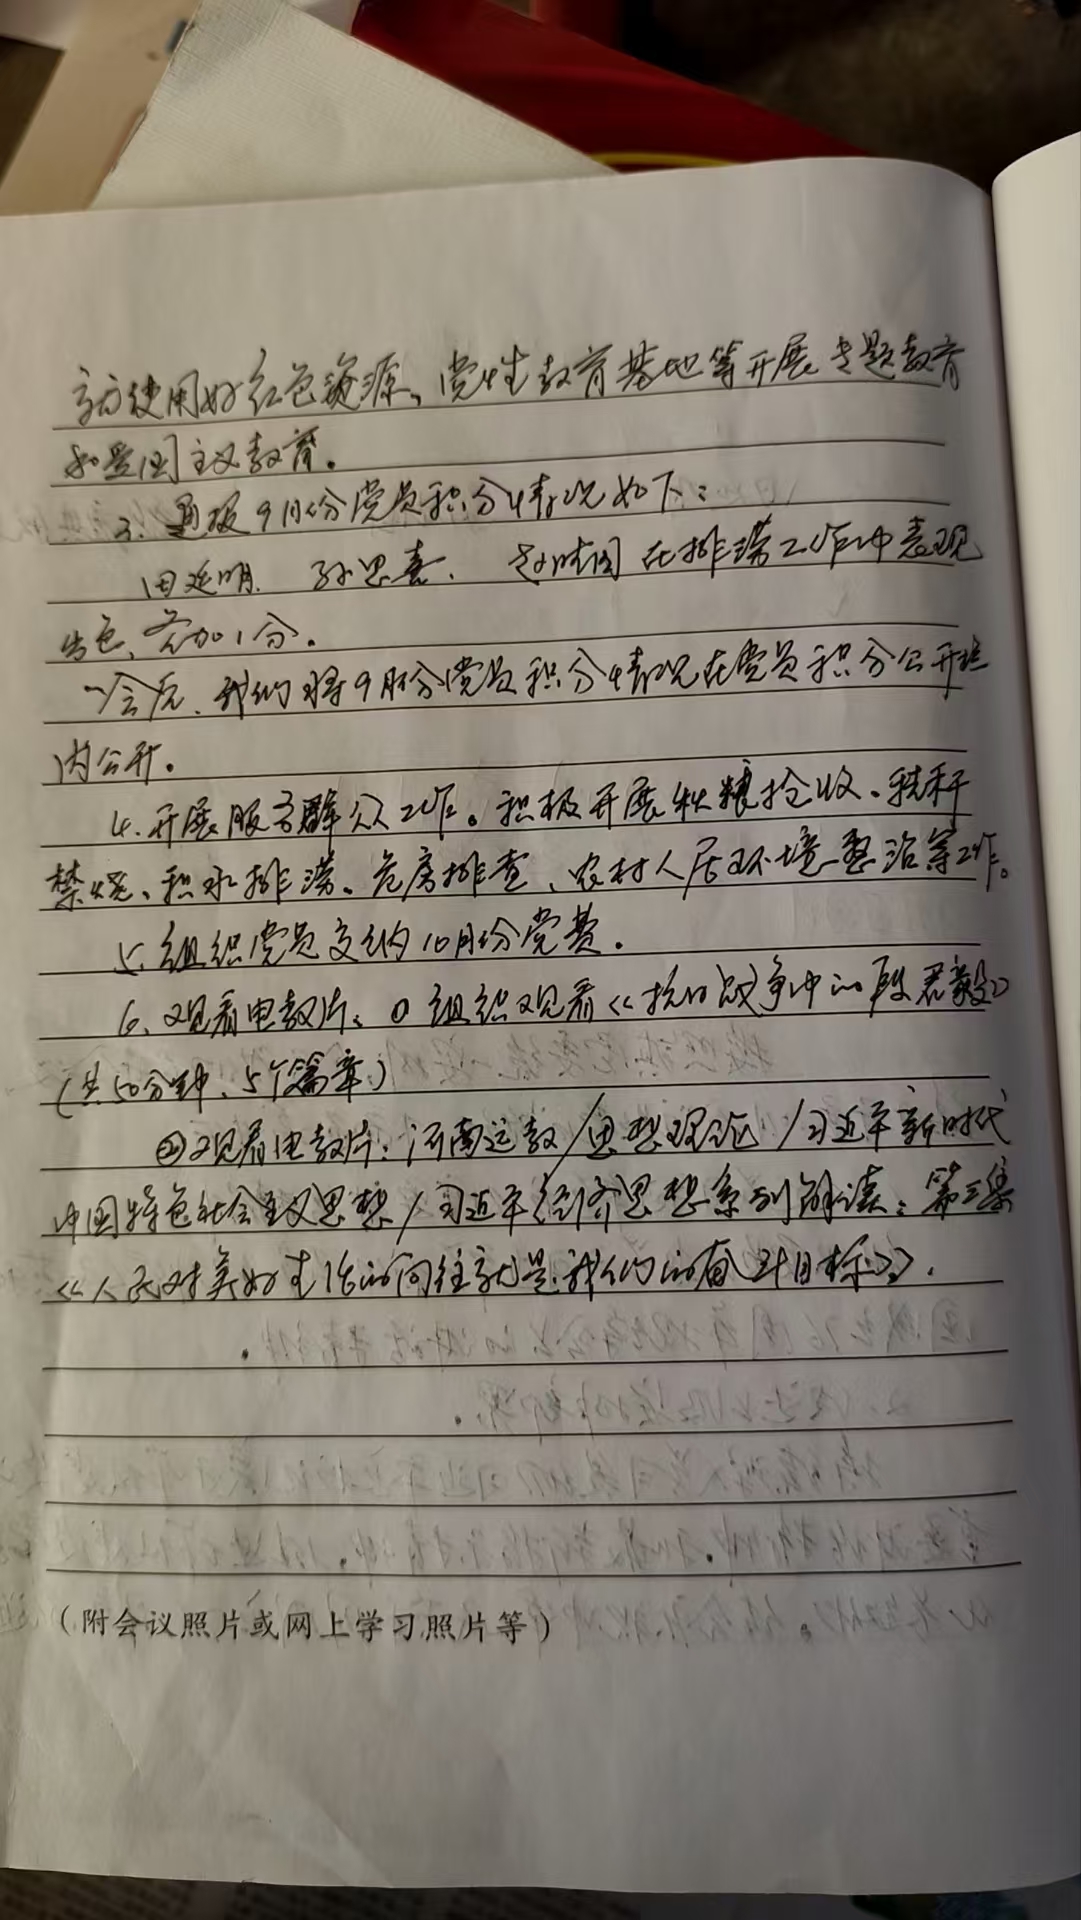 使用好红色资源、党性教育基地等开展专题教育
和爱国主义教育。
3. 通报9月份党员积分情况如下：
田延明、孙思喜、 在排涝工作中表现
出色，各加1分。
会后，我们将9月份党员积分情况在党员积分公开栏
内公开。
4. 开展服务群众工作。积极开展秋粮抢收、秸秆
禁烧、积水排涝、危房排查、农村人居环境整治等工作。
5. 组织党员交纳10月份党费。
6. 观看电教片：①组织观看《抗日战争中的段君毅》
（共50分钟、5个篇章）
②观看电教片：河南远教/思想理论/习近平新时代
中国特色社会主义思想/习近平经济思想系列解读：第三集
《人民对美好生活的向往就是我们的奋斗目标》。
（附会议照片或网上学习照片等）